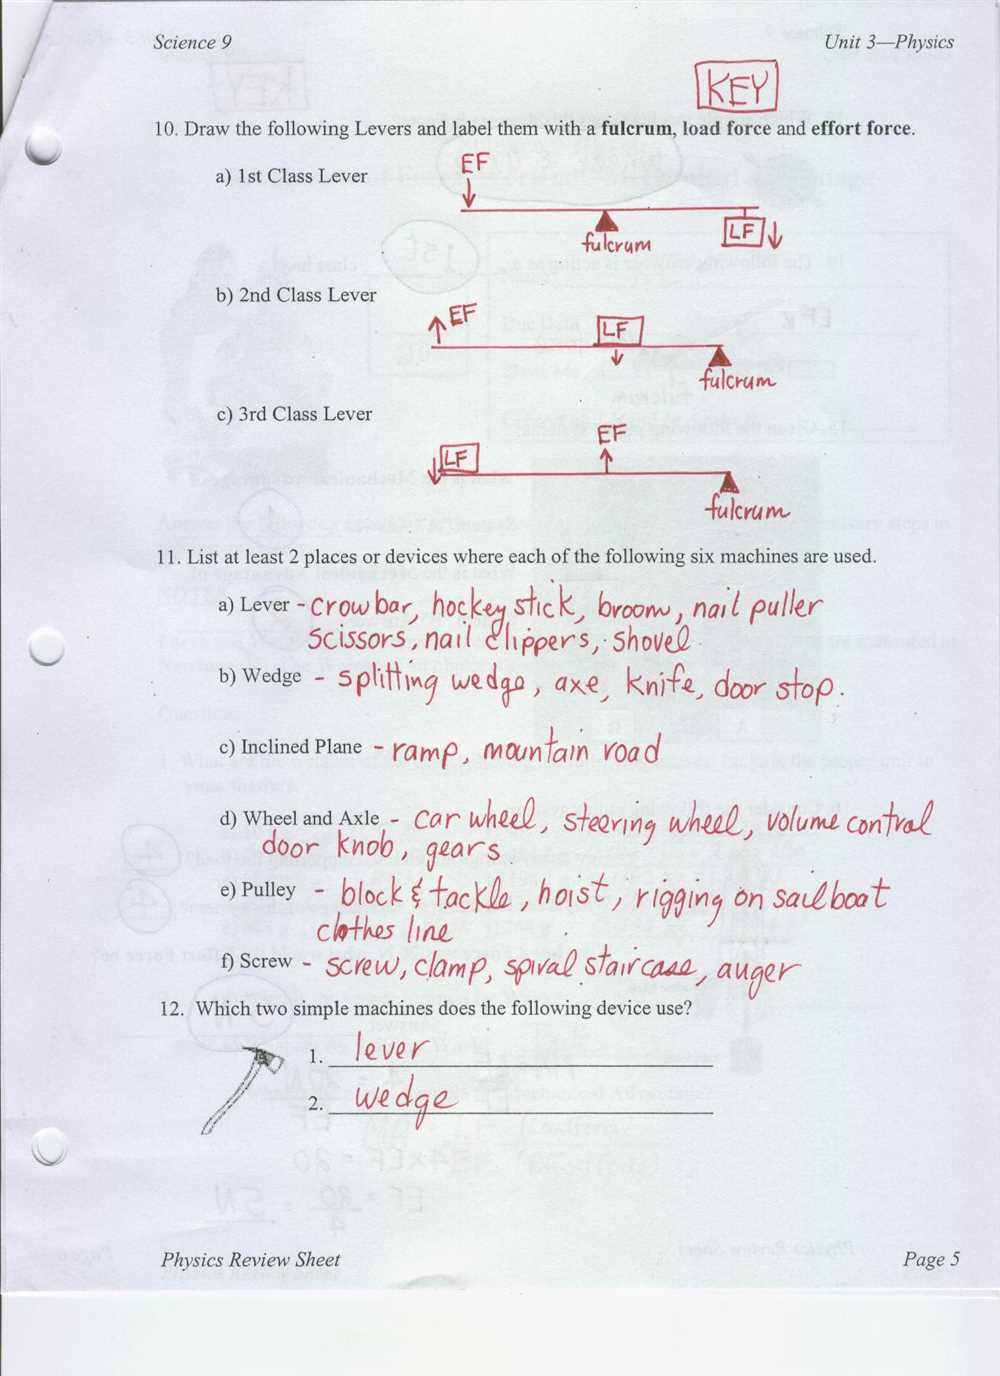 Science 9
Unit 3—Physics
KEY
10. Draw the following Levers and label them with a fulcrum, load force and effort force.
a) 1st Class Lever
EF
fulcrum
LF
b) 2nd Class Lever
EF
LF
fulcrum
c) 3rd Class Lever
LF
EF
fulcrum
11. List at least 2 places or devices where each of the following six machines are used.
a) Lever - crowbar, hockey stick, broom, nail puller
scissors, nail clippers, shovel
b) Wedge - splitting wedge, axe, knife, door stop.
c) Inclined Plane - ramp, mountain road
d) Wheel and Axle - car wheel, steering wheel, volume control
door knob, gears
e) Pulley - block & tackle, hoist, rigging on sailboat
clothes line
f) Screw - screw, clamp, spiral staircase, auger
12. Which two simple machines does the following device use?
1. lever
2. wedge
Physics Review Sheet
Page 5